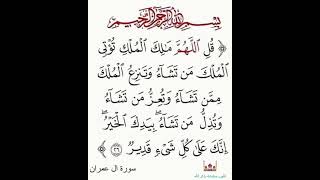 بِسْمِ اللَّهِ الرَّحْمَٰنِ الرَّحِيمِ
﴿ قُلِ ٱللَّهُمَّ مَٰلِكَ ٱلْمُلْكِ تُؤْتِى
ٱلْمُلْكَ مَن تَشَآءُ وَتَنزِعُ ٱلْمُلْكَ
مِمَّن تَشَآءُ وَتُعِزُّ مَن تَشَآءُ
وَتُذِلُّ مَن تَشَآءُ ۖ بِيَدِكَ ٱلْخَيْرُ ۖ
إِنَّكَ عَلَىٰ كُلِّ شَىْءٍ قَدِيرٌ ٢٦ ﴾
سورة ال عمران